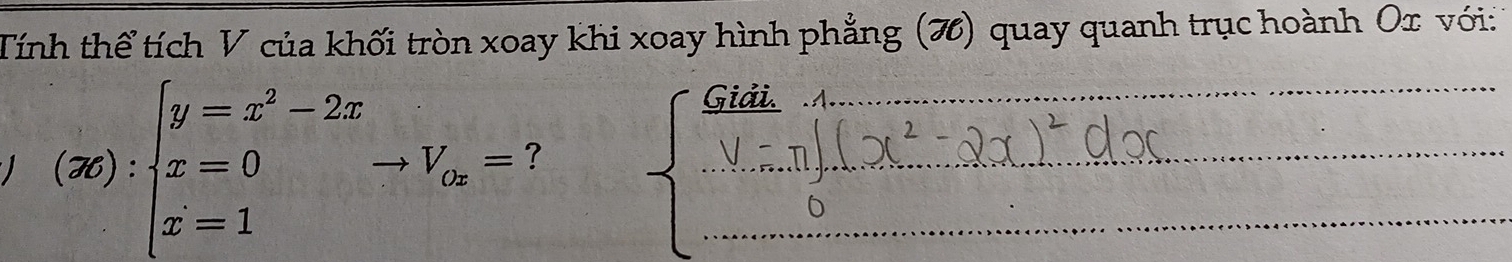 Tính thể tích V của khối tròn xoay khi xoay hình phẳng (ℋ) quay quanh trục hoành Ox với:
) (ℋ) : { y = x² − 2x
x = 0 → V_Ox = ?
x = 1
Giải. 1
V = π∫(x² - 2x)² dx
0